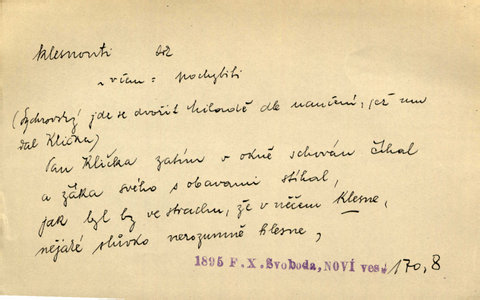 klesnouti
„v čem“ pochybiti
(Sychrovský jde se dvořit Miladě dle naučení, jež mu
dal Klička)
Pan Klička zatím v okně schován číhal
a žáka svého s obavami stíhal,
jak byl by ve strachu, že v něčem klesne,
nějaké slůvko nerozumně hlesne,
1895 F. X. Svoboda, NOVÍ ves. 170, 8